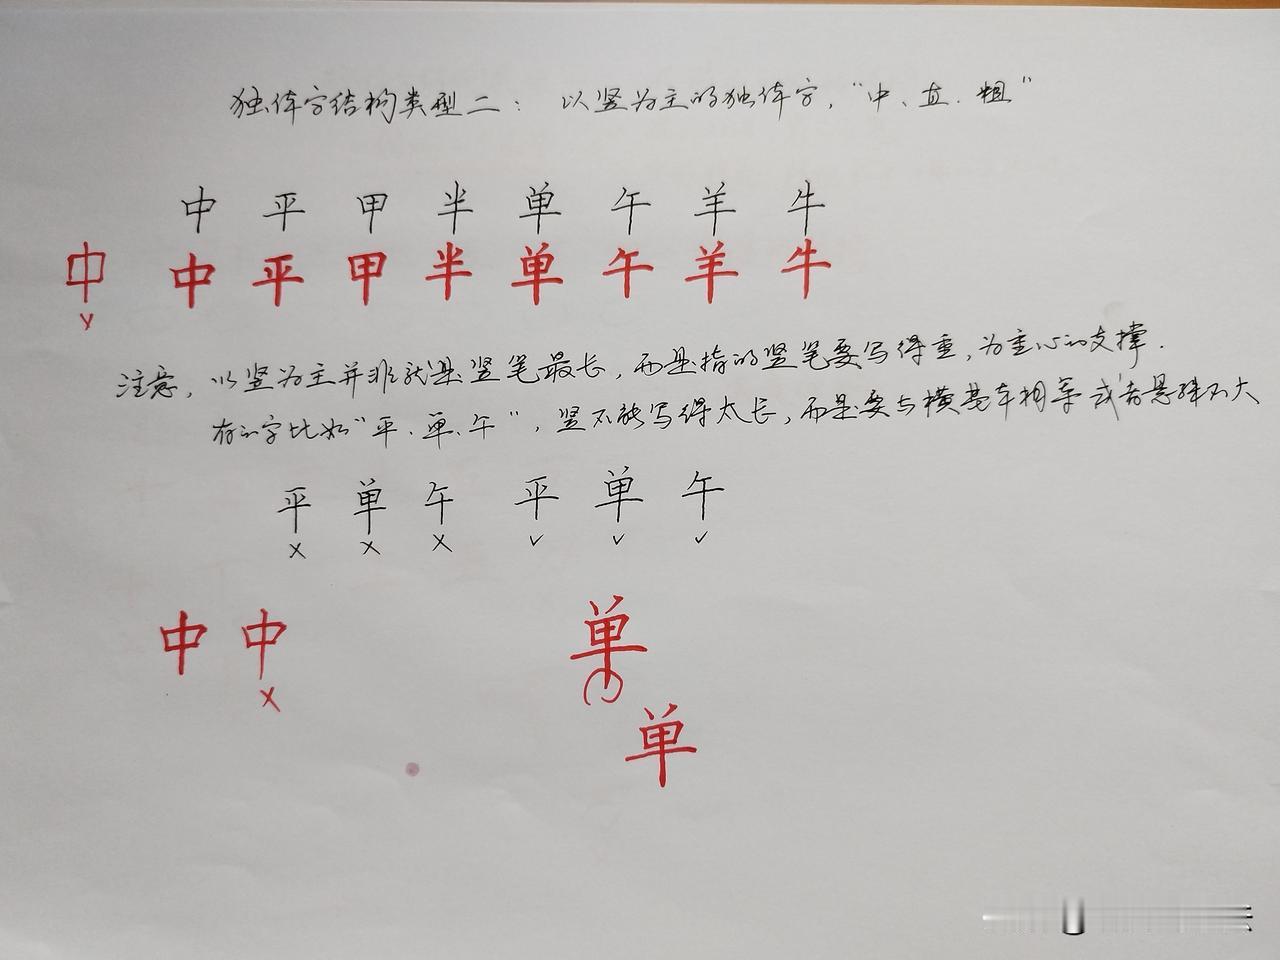 独体字结构类型二： 以竖为主的独体字，“中、直、粗”
中 平 甲 半 单 午 羊 牛
中 中 平 甲 半 单 午 羊 牛
x
注意，以竖为主并非就是竖笔最长，而是指的竖笔要写得重，为重心的支撑．
有的字比如“平、单、午”，竖不能写得太长，而是要与横基本相等或者悬殊不大
平 单 午 平 单 午
x x x ✓ ✓ ✓
中 中 单
x
单